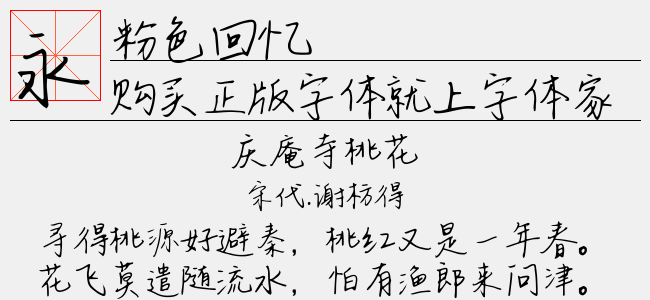 永
粉色回忆
购买正版字体就上字体家
庆庵寺桃花
宋代.谢枋得
寻得桃源好避秦，桃红又是一年春。
花飞莫遣随流水，怕有渔郎来问津。